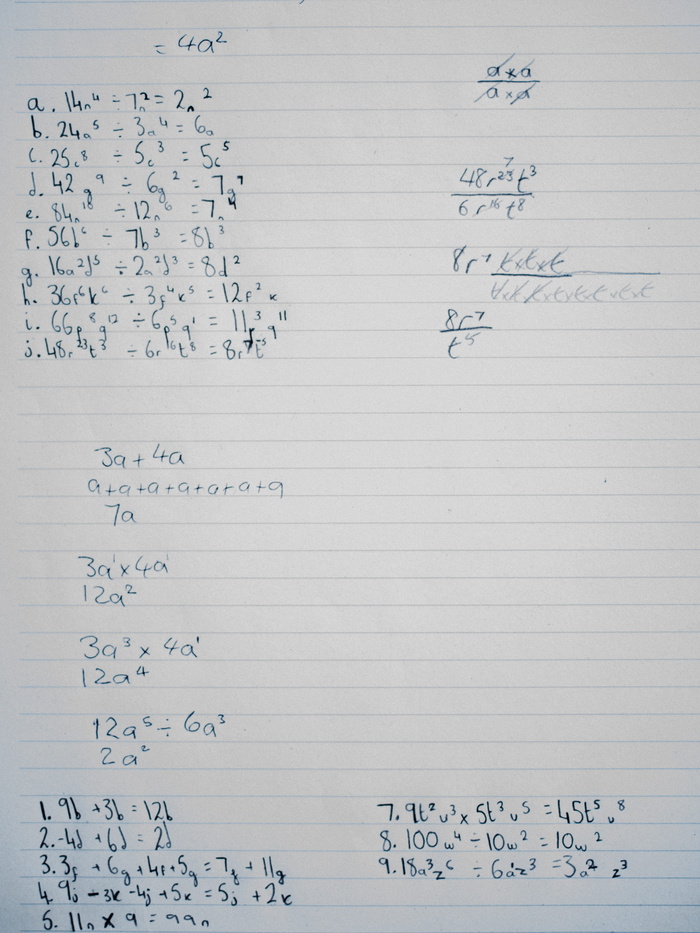 = 4a²
a. 14n⁴ ÷ 7n² = 2n²
b. 24a⁵ ÷ 3a⁴ = 6a
c. 25c⁸ ÷ 5c³ = 5c⁵
d. 42g⁹ ÷ 6g² = 7g⁷
e. 84n¹⁰ ÷ 12n⁶ = 7n⁴
f. 56b⁶ ÷ 7b³ = 8b³
g. 16a²d⁵ ÷ 2a²d³ = 8d²
h. 36f⁶k⁶ ÷ 3f⁴k⁵ = 12f²k
i. 66p⁸q¹² ÷ 6p⁵q¹ = 11p³q¹¹
j. 48r²³t³ ÷ 6r¹⁶t⁸ = 8r⁷t⁻⁵
a × a
a × a
7
48r²³t³
6r¹⁶t⁸
8r⁷ t×t×t
t×t×t×t×t×t×t×t
8r⁷
t⁵
3a + 4a
a+a+a+a+a+a+a
7a
3a¹ × 4a¹
12a²
3a³ × 4a¹
12a⁴
12a⁵ ÷ 6a³
2a²
1. 9b + 3b = 12b
2. -4d + 6d = 2d
3. 3f + 6g + 4f + 5g = 7f + 11g
4. 9j - 3k - 4j + 5k = 5j + 2k
5. 11n × 9 = 99n
7. 9t²v³ × 5t³v⁵ = 45t⁵v⁸
8. 100w⁴ ÷ 10w² = 10w²
9. 18a³z⁶ ÷ 6a¹z³ = 3a²z³